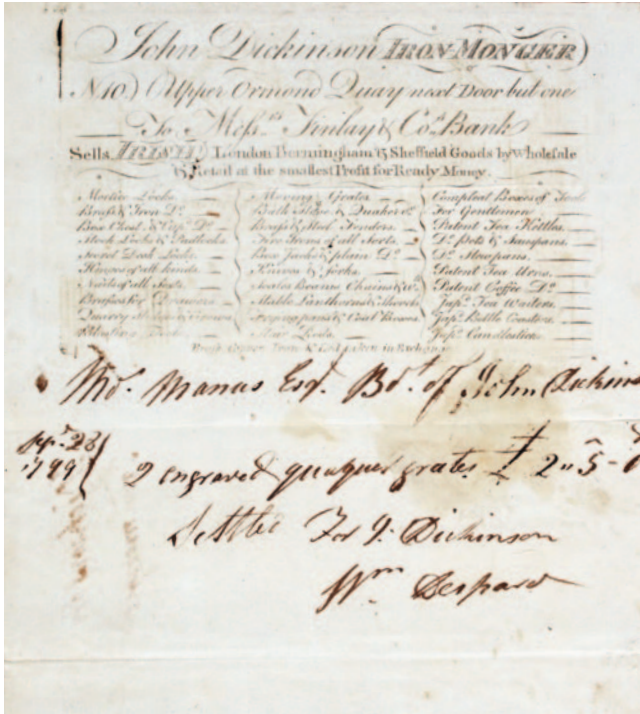 John Dickinson IRON MONGER
No 10 Upper Ormond Quay next Door but one
To Messrs. Finlay & Cos. Bank
Sells IRISH London Bermingham & Sheffield Goods by Wholesale
& Retail at the smallest Profit for Ready Money.
Mortice Locks
Brass & Iron Do.
Box Chest & Cup. Do.
Stock Locks & Padlocks
Secret Dead Locks
Hinges of all kinds
Nails of all Sorts
Brasses for Drawers
Moving Grates
Bath Stove & Quaker Do.
Brass & Steel Fenders
Fire Irons of all Sorts
Box Jacks & plain Do.
Knives & Forks
Scales Beams Chains & Wts.
Frying pans & Coal Boxes
Compleat Boxes of Tools
For Gentlemen
Patent Tea Kettles
Do. Pots & Saucpans
Do. Stewpans
Patent Tea Urns
Patent Coffee Do.
Japd. Tea Waiters
Japd. Bottle Coasters
Japd. Candlesticks
taken in Exchange
Manus Esqr. Bot. of John Dickins
28
1799
2 engraved quaquer grates £ 2 " 5 -
Settled For J. Dickinson
Wm Despard